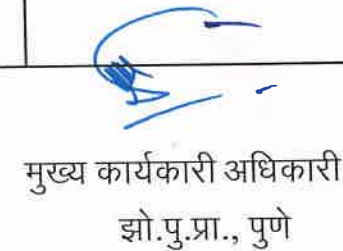 मुख्य कार्यकारी अधिकारी
झो.पु.प्रा., पुणे